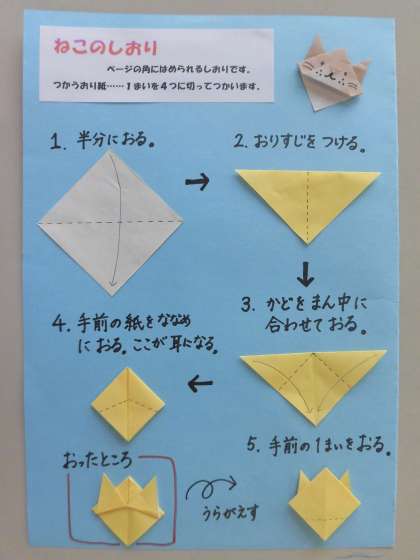 ねこのしおり
ページの角にはめられるしおりです。
つかうおり紙……1まいを4つに切ってつかいます。
1. 半分におる。
2. おりすじをつける。
3. かどをまん中に
合わせておる。
4. 手前の紙をななめ
におる。ここが耳になる。
5. 手前の1まいをおる。
おったところ
うらがえす